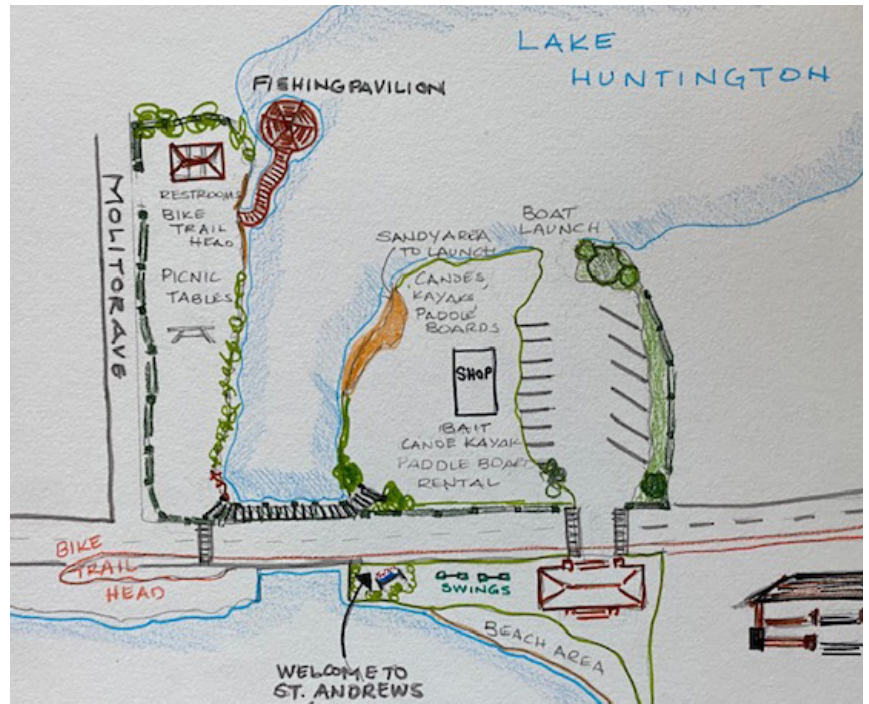 LAKE
HUNTINGTON
FISHING PAVILION
MOLITOR AVE
RESTROOMS
BIKE
TRAIL
HEAD
PICNIC
TABLES
SANDY AREA
TO LAUNCH
CANOES,
KAYAKS,
PADDLE
BOARDS
BOAT
LAUNCH
SHOP
BAIT
CANOE KAYAK
PADDLE BOARD
RENTAL
BIKE
TRAIL
HEAD
SWINGS
BEACH AREA
WELCOME TO
ST. ANDREWS